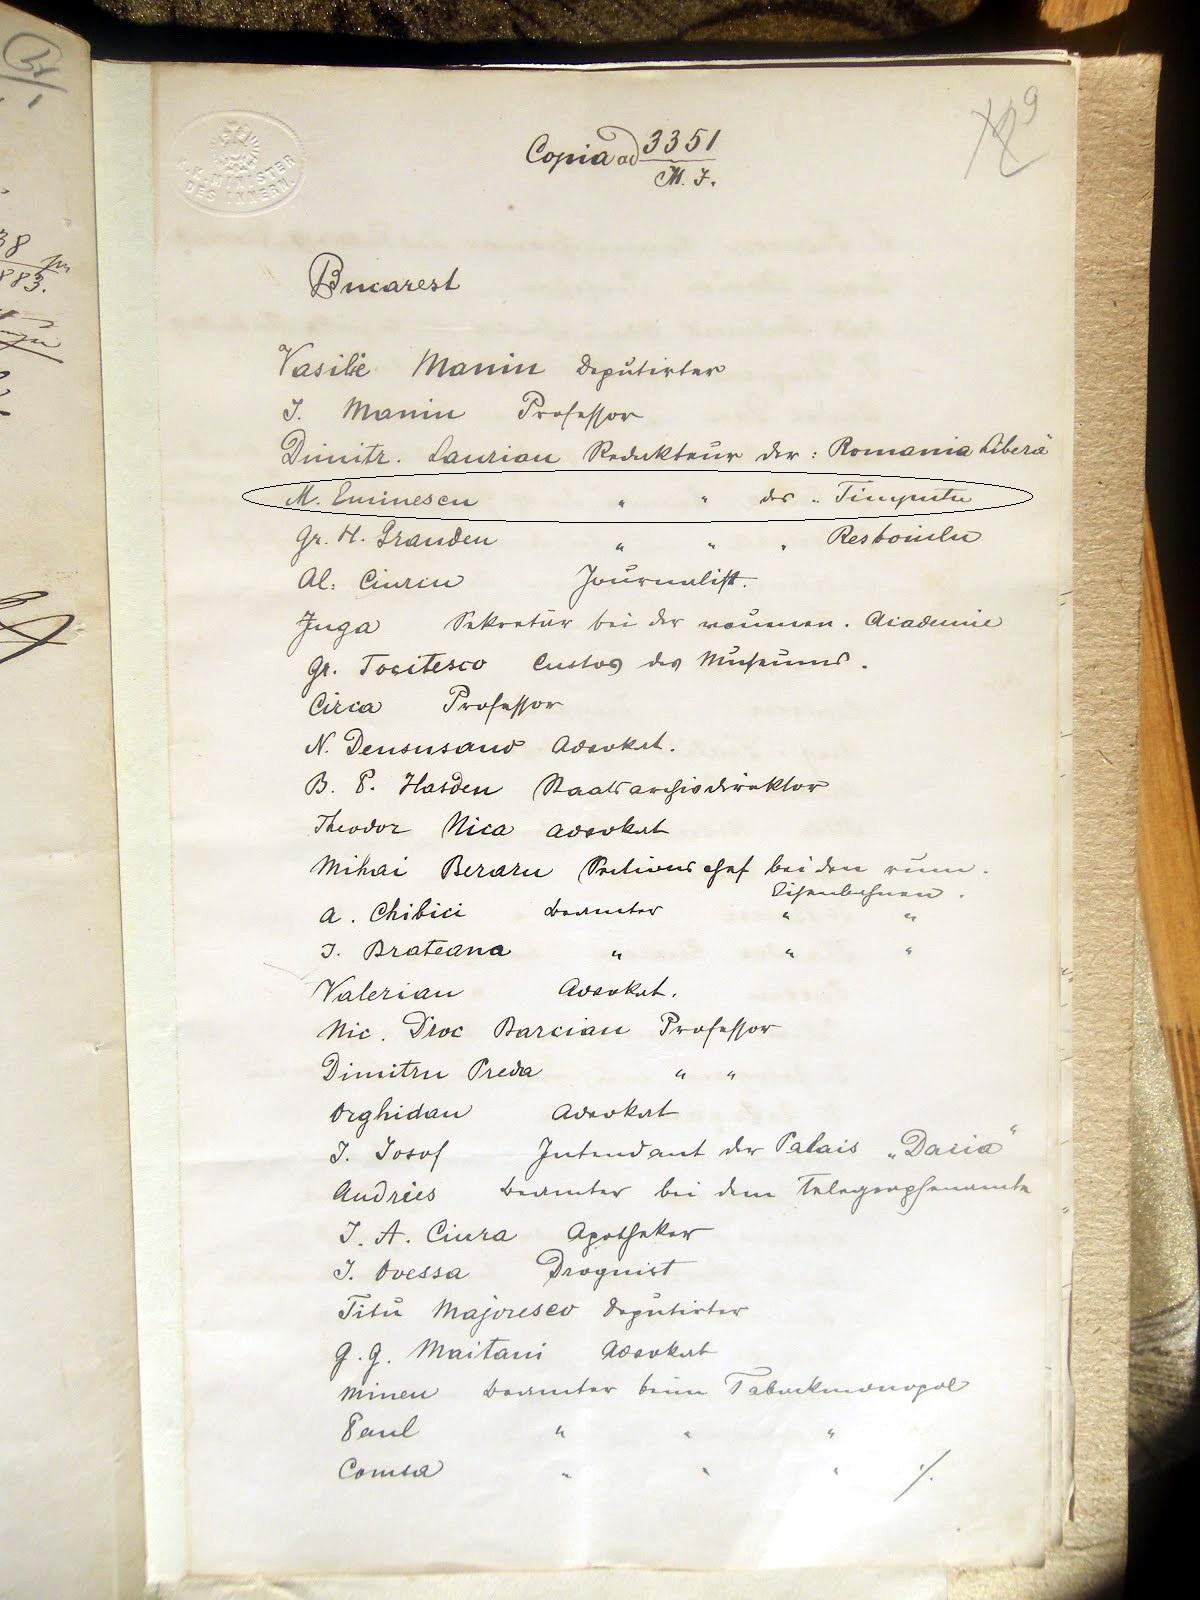 K.K. MINISTER
DES INNERN.
9
Copia ad 3351
M. I.
38
883.
Bucarest
Vasilie Maniu Deputirter
I. Maniu Professor
Dimitr. Laurian Redakteur der: Romania liberă
M. Eminescu " " des " Timpulu
Gr. H. Grandea " " " Resboiulu
Al. Ciurcu Journalist.
Juga Sekretär bei der roumän. Academie
Gr. Tocilesco Custos des Museums.
Circa Professor
N. Densusano Advokat.
B. P. Hasdeu Staatsarchivdirektor
Theodor Nica Advokat
Mihai Beraru Sectionschef bei den rum.
Eisenbahnen.
A. Chibici Beamter " "
I. Brateanu " " "
Valerian Advokat.
Nic. Droc Barcian Professor
Dimitru Preda " "
Orghidan Advokat
I. Iosof Intendant der Palais „Dacia"
Andries Beamter bei dem Telegraphenamte
I. A. Ciura Apotheker
I. Ovessa Droguist
Titu Majoresco Deputirter
G. G. Maitani Advokat
Mineu Beamter beim Taback monopol
Paul " " "
Comsa " " " ./.